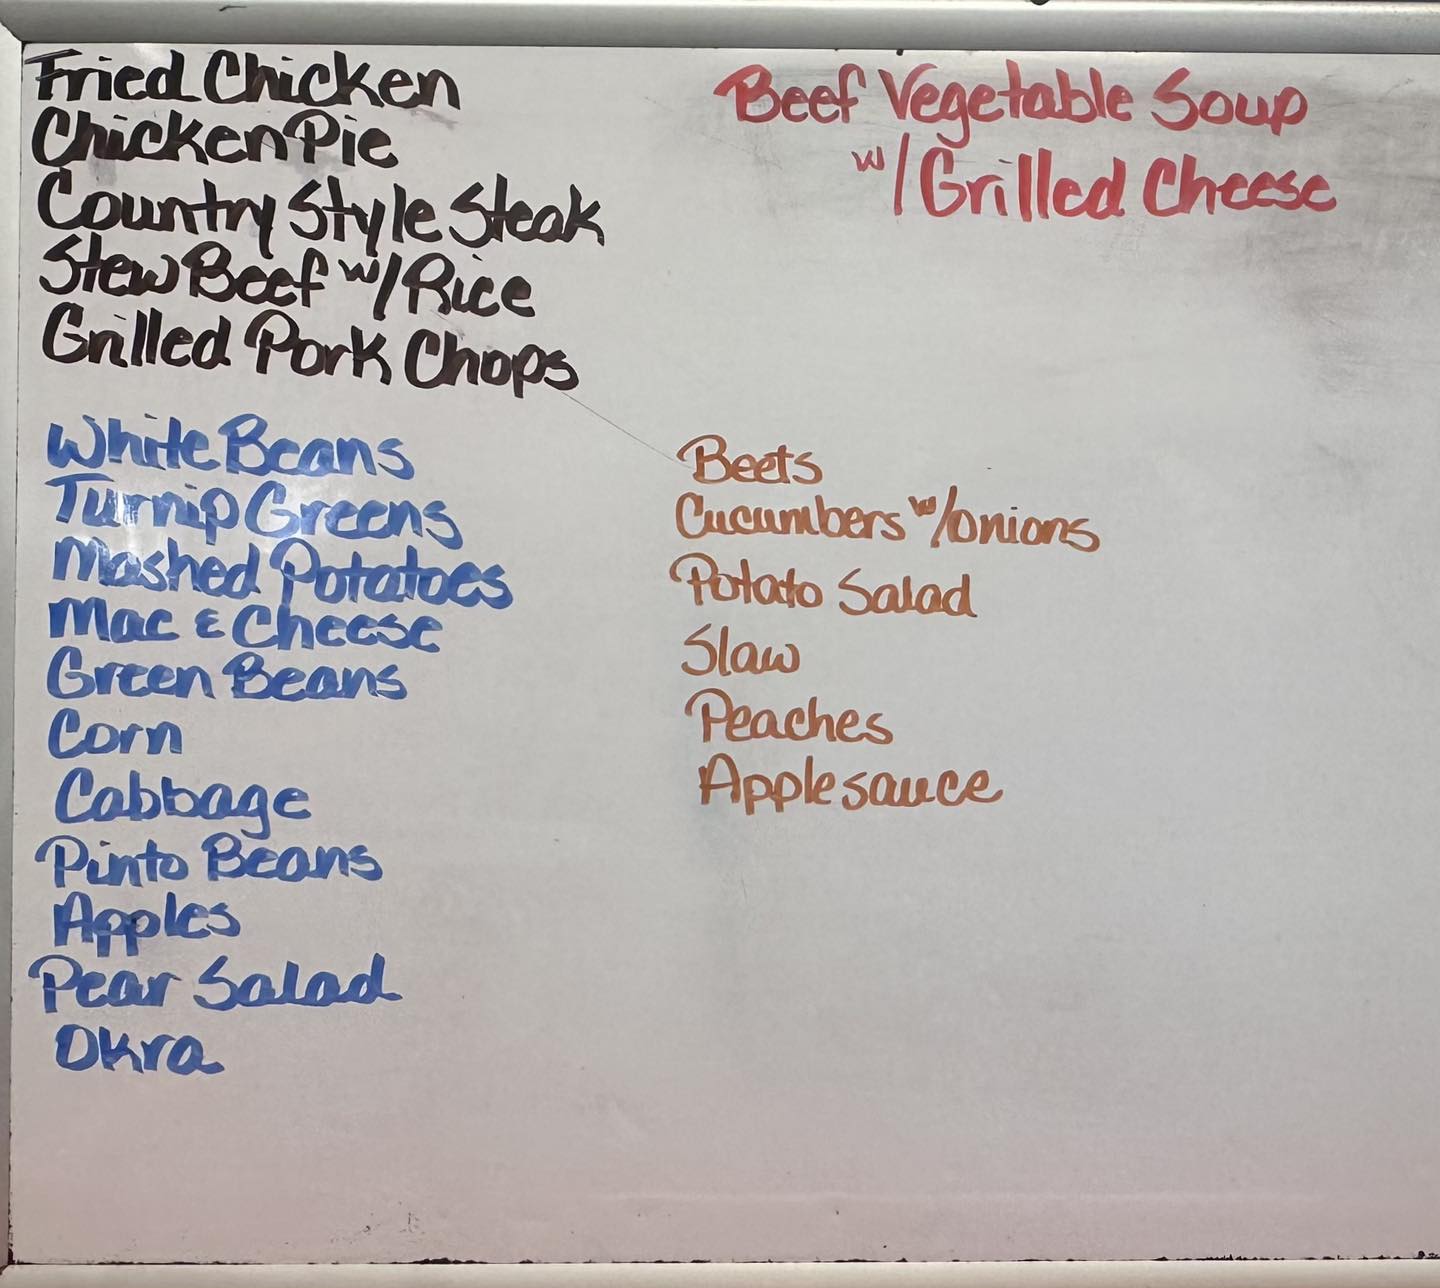 Fried Chicken
Chicken Pie
Country Style Steak
Stew Beef w/ Rice
Grilled Pork Chops
Beef Vegetable Soup
w/ Grilled Cheese
White Beans
Turnip Greens
Mashed Potatoes
Mac & Cheese
Green Beans
Corn
Cabbage
Pinto Beans
Apples
Pear Salad
Okra
Beets
Cucumbers w/onions
Potato Salad
Slaw
Peaches
Applesauce